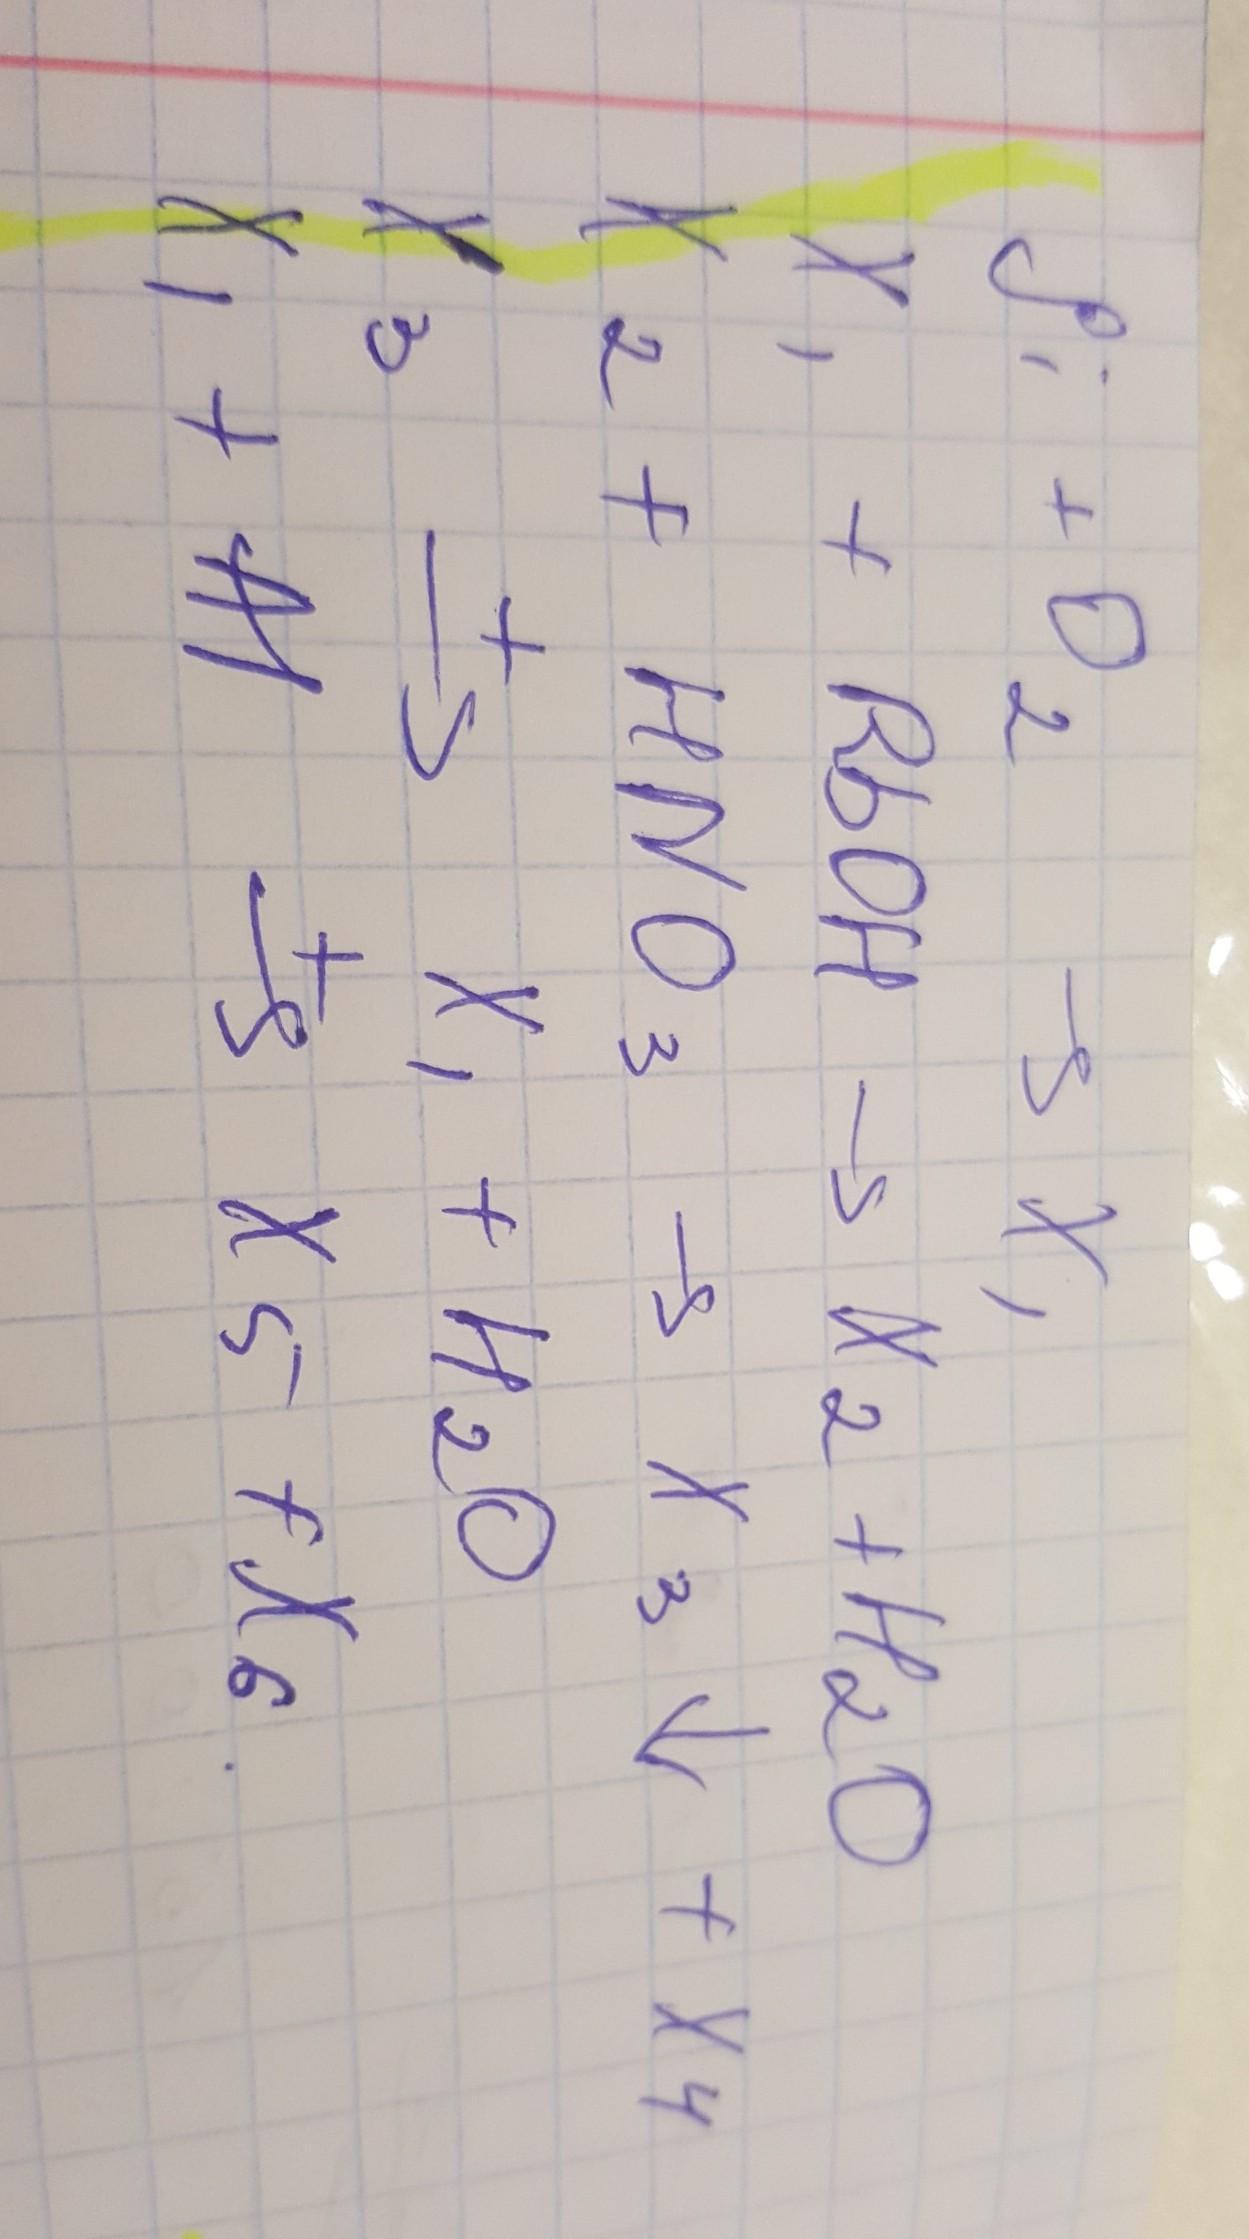 Si + O₂ → X₁
X₁ + RbOH → X₂ + H₂O
X₂ + HNO₃ → X₃↓ + X₄
X₃ →ᵗ X₁ + H₂O
X₁ + Al →ᵗ X₅ + X₆.